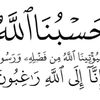 حَسْبُنَا اللَّهُ
سَيُؤْتِينَا اللَّهُ مِن فَضْلِهِ وَرَسُولُهُ
إِنَّا إِلَى اللَّهِ رَاغِبُونَ